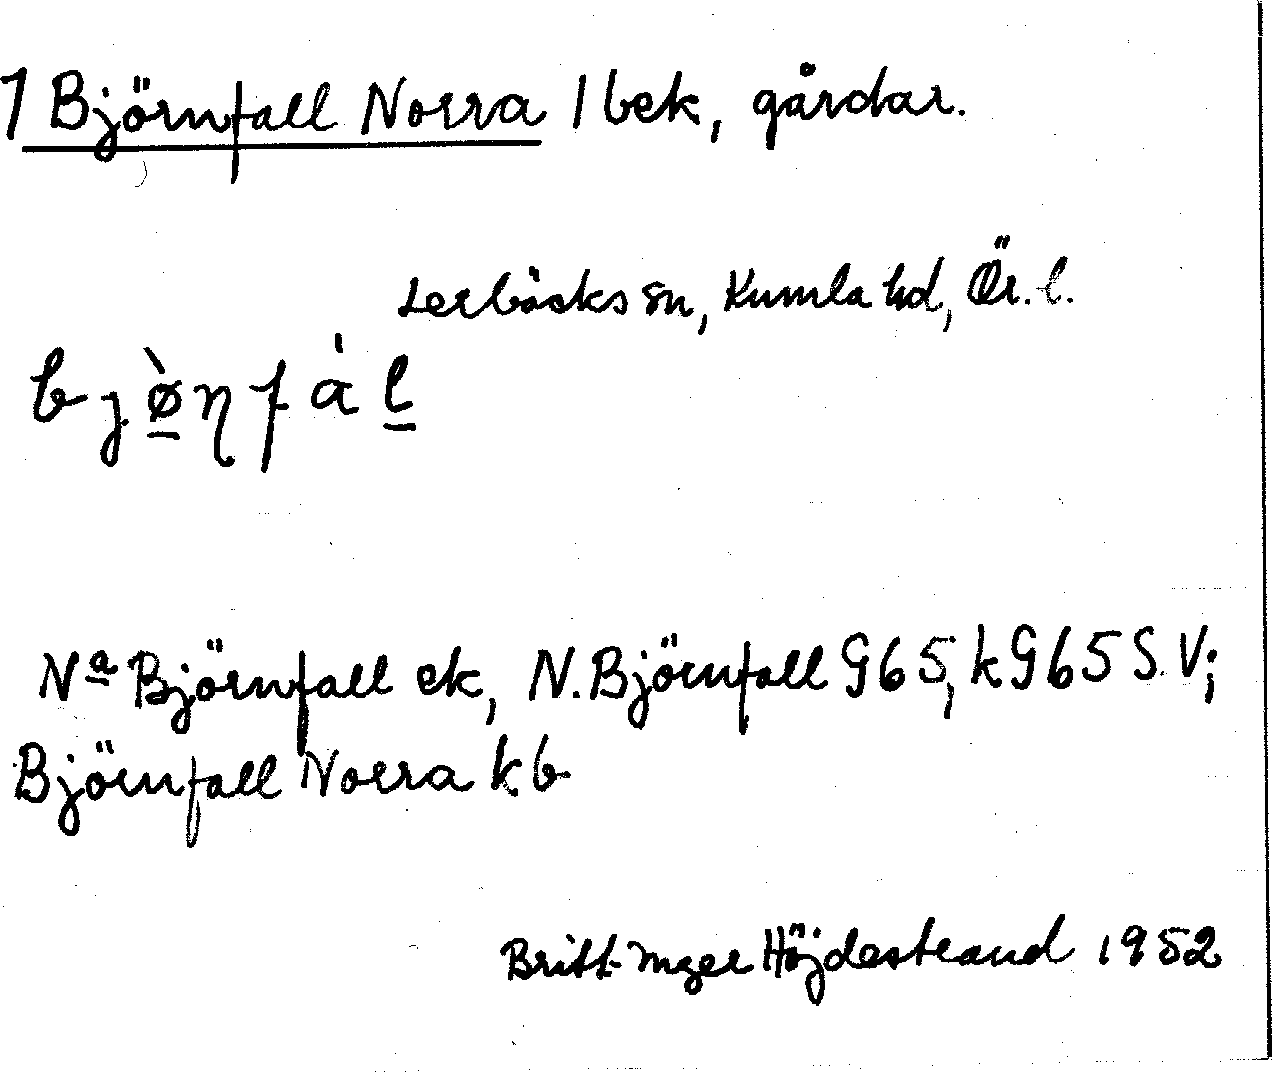 1 Björnfall Norra 1 bek, gårdar.
Lerbäcks sn, Kumla hd, Ör. l.
bjø̠̀ɳfàl̠
Nª Björnfall ek, N. Björnfall G65, kG65 S.V;
Björnfall Norra kb
Britt-Inger Höjdestrand 1952